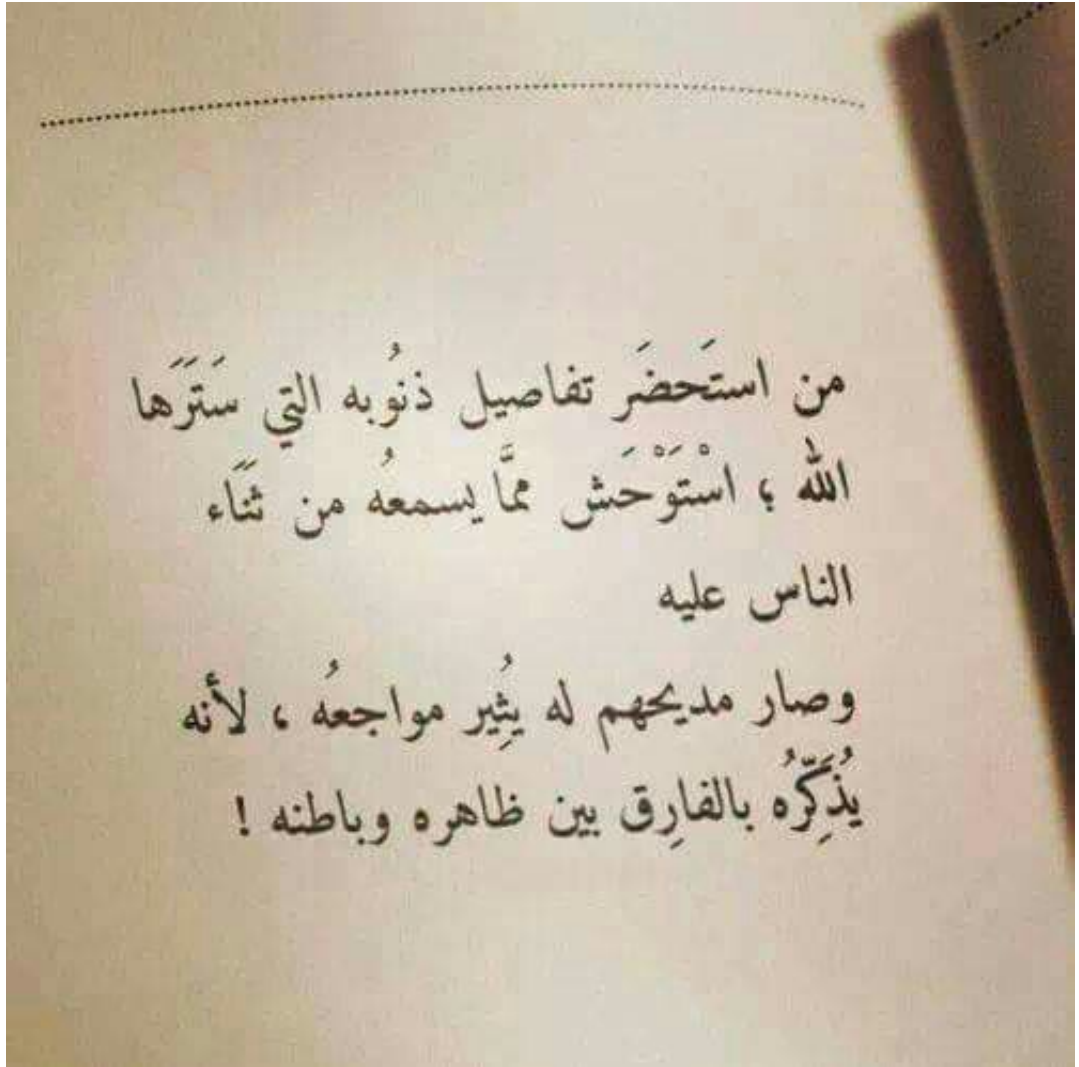 من استَحضَر تفاصيل ذنُوبه التي سَتَرَها
الله ؛ اسْتَوْحَش ممَّا يسمعُه من ثَنَاء
الناس عليه
وصار مديحهم له يُثِير مواجعهُ ، لأنه
يُذَكِّرُه بالفارِق بين ظاهره وباطنه !